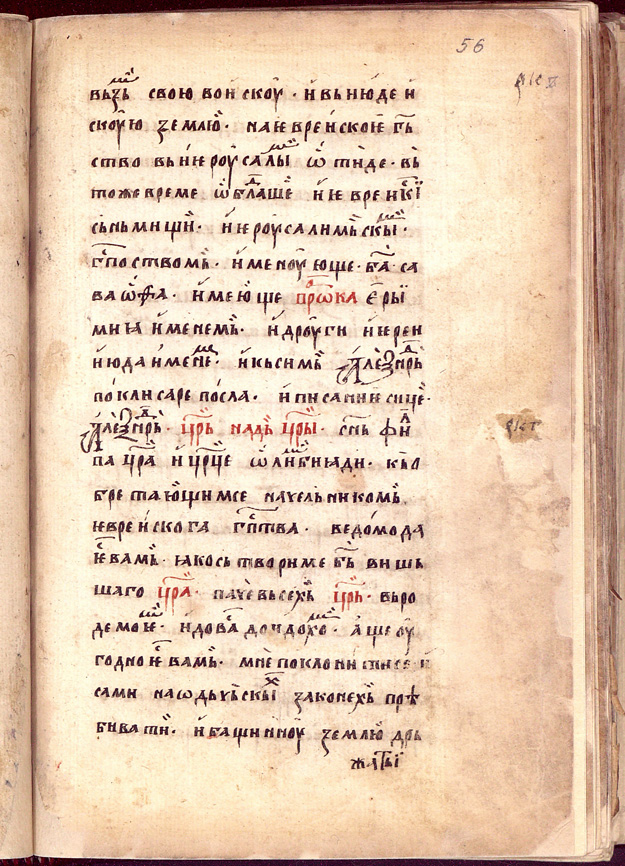 56
вьзь свою воискоу · и вьнюдеи
скоую землю · на еврейское гь
ство вь иероусалы ѿтиде · вь
тоже време ѡбладаше и евреискї
сьньмищи · и иероусалимьскы ·
гпⷭоствомь · именоующе · ба са
ваѡфа · имеюще прⷪрѡка ерьї
миа именемь · и дроуги иереи
июда имене · и кь симь алеѯⷣнрь
поклисаре посла · и писание сице ·
алеѯⷣнрь · црь надь цры · снь фиⷧ
па цра и црце ѡлимбиади · кь ѡ
бретающимсе начельникомь
евреискога гпⷭтва · ведомо да
е вамь · iако створи ме бь виш
шаго цра · паче вьсехь црь · вь ро
де мое · и до ва до · аще оу
годно е вамь · мне поклонити се и
сами на ѡдьхьскыⷯ законехь прѣ
бивати · и вашиноу землю дрь
жатьї